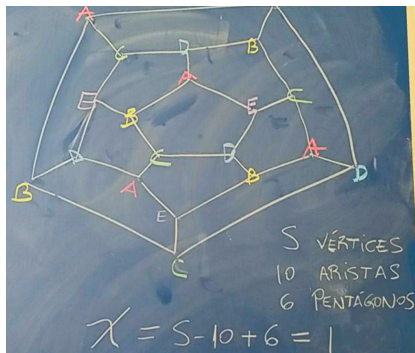 A
C D B
A
E B E C
D C D A
B A B D
E
C
5 VÉRTICES
10 ARISTAS
6 PENTÁGONOS
χ = 5-10+6 = 1